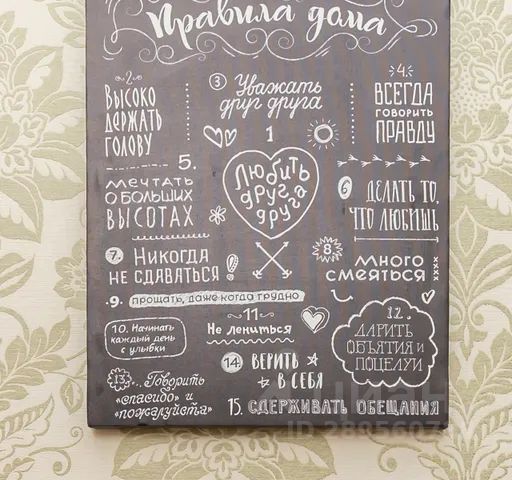 Правила дома
2.
Высоко
держать
голову
3 Уважать
друг друга
4.
Всегда
говорить
правду
1
Любить
друг
друга
5.
мечтать
о больших
высотах
6 Делать то,
что любишь
7. Никогда
не сдаваться!
8. много
смеяться
9. прощать, даже когда трудно
10. Начинать
каждый день
с улыбки
11
Не лениться
12.
Дарить
объятия и
поцелуи
13. Говорить
«спасибо» и
«пожалуйста»
14 Верить
в себя
15. сдерживать обещания